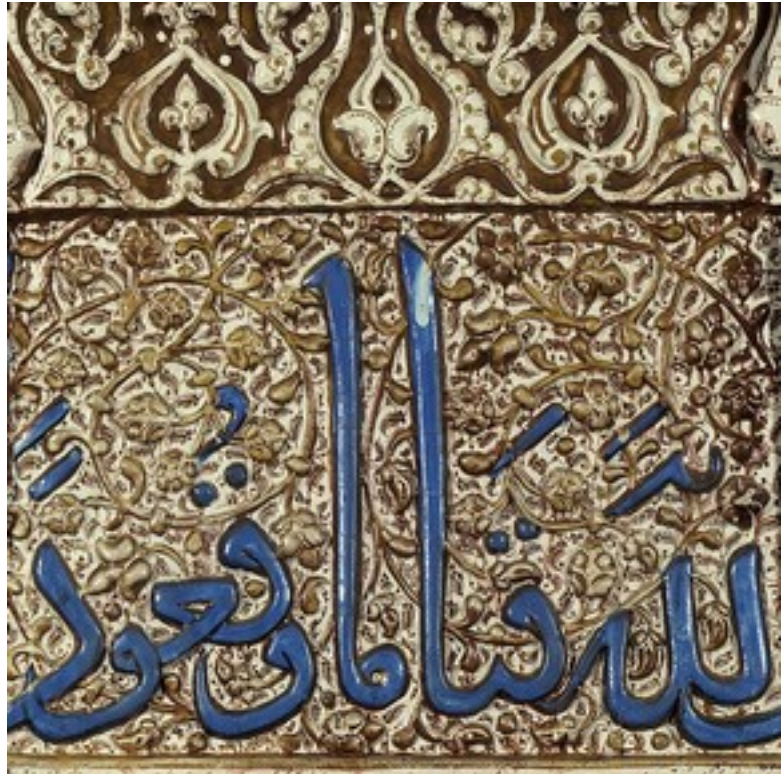 لله قياما وقعود